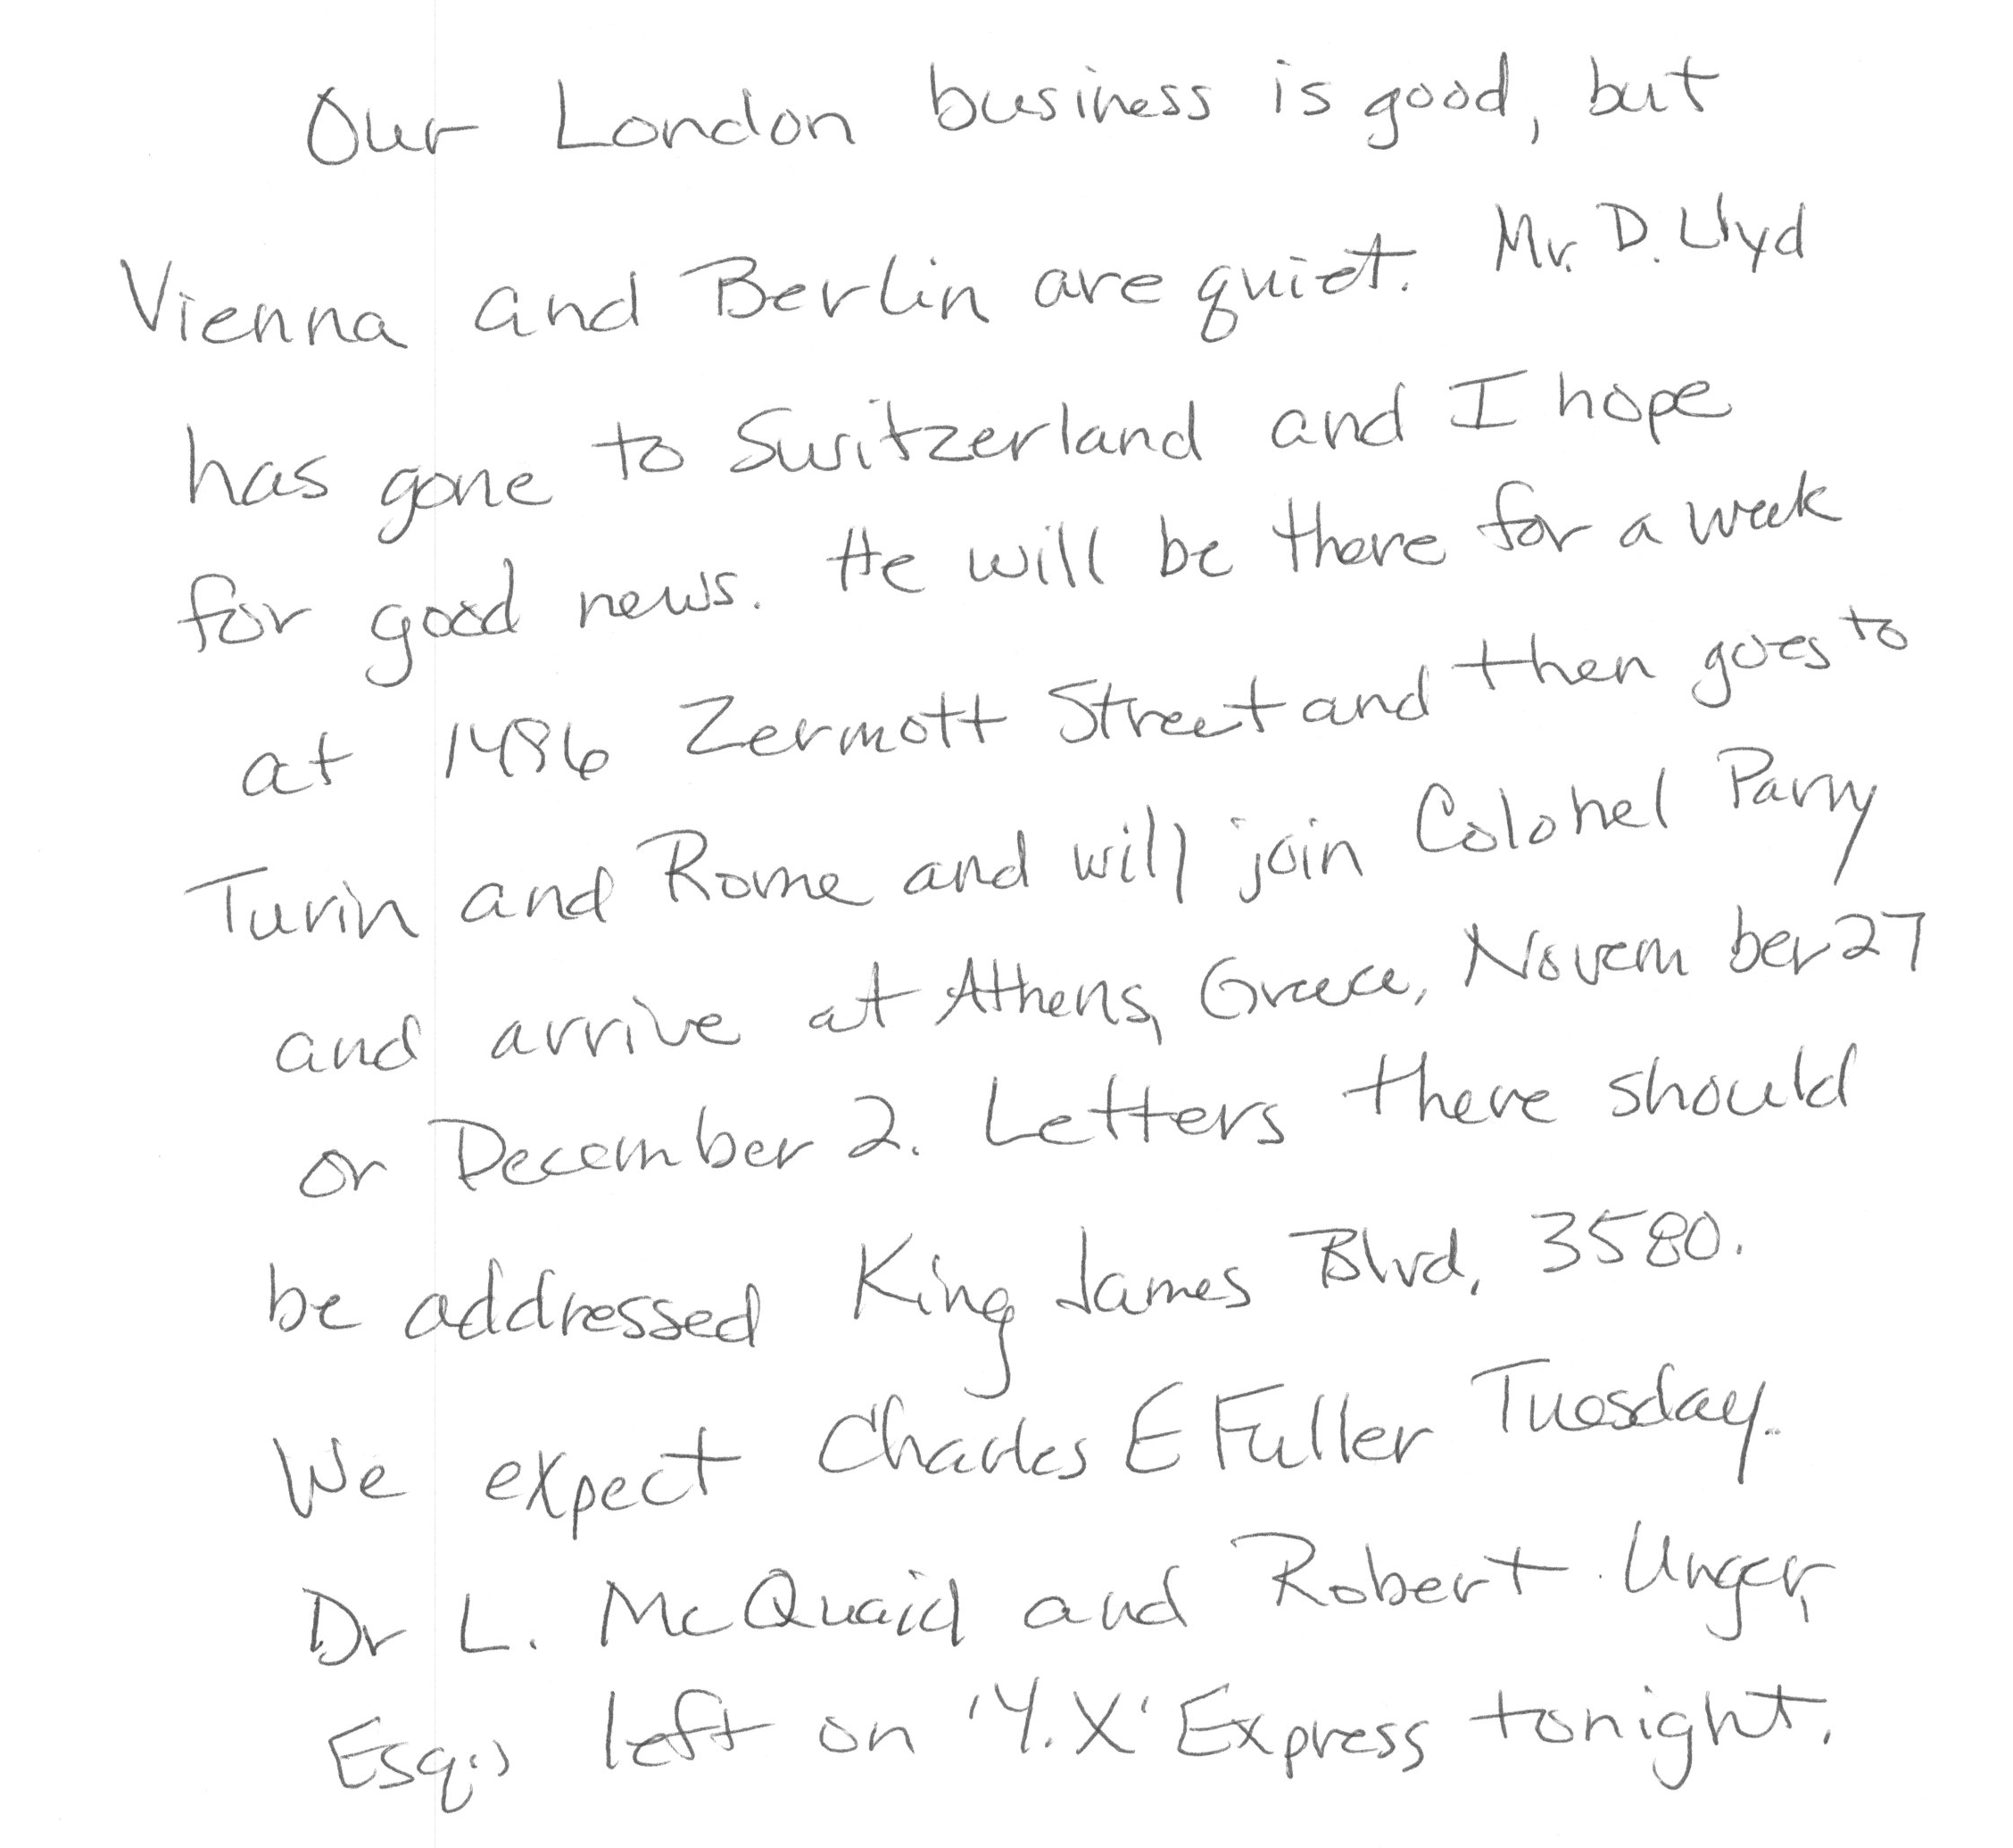 Our London business is good, but
Vienna and Berlin are quiet. Mr. D. Llyd
has gone to Switzerland and I hope
for good news. He will be there for a week
at 1486 Zermott Street and then goes to
Turin and Rome and will join Colonel Parry
and arrive at Athens, Greece, November 27
or December 2. Letters there should
be addressed King James Blvd. 3580.
We expect Charles E Fuller Tuesday.
Dr L. McQuaid and Robert Unger,
Esq., left on 'Y.X' Express tonight.